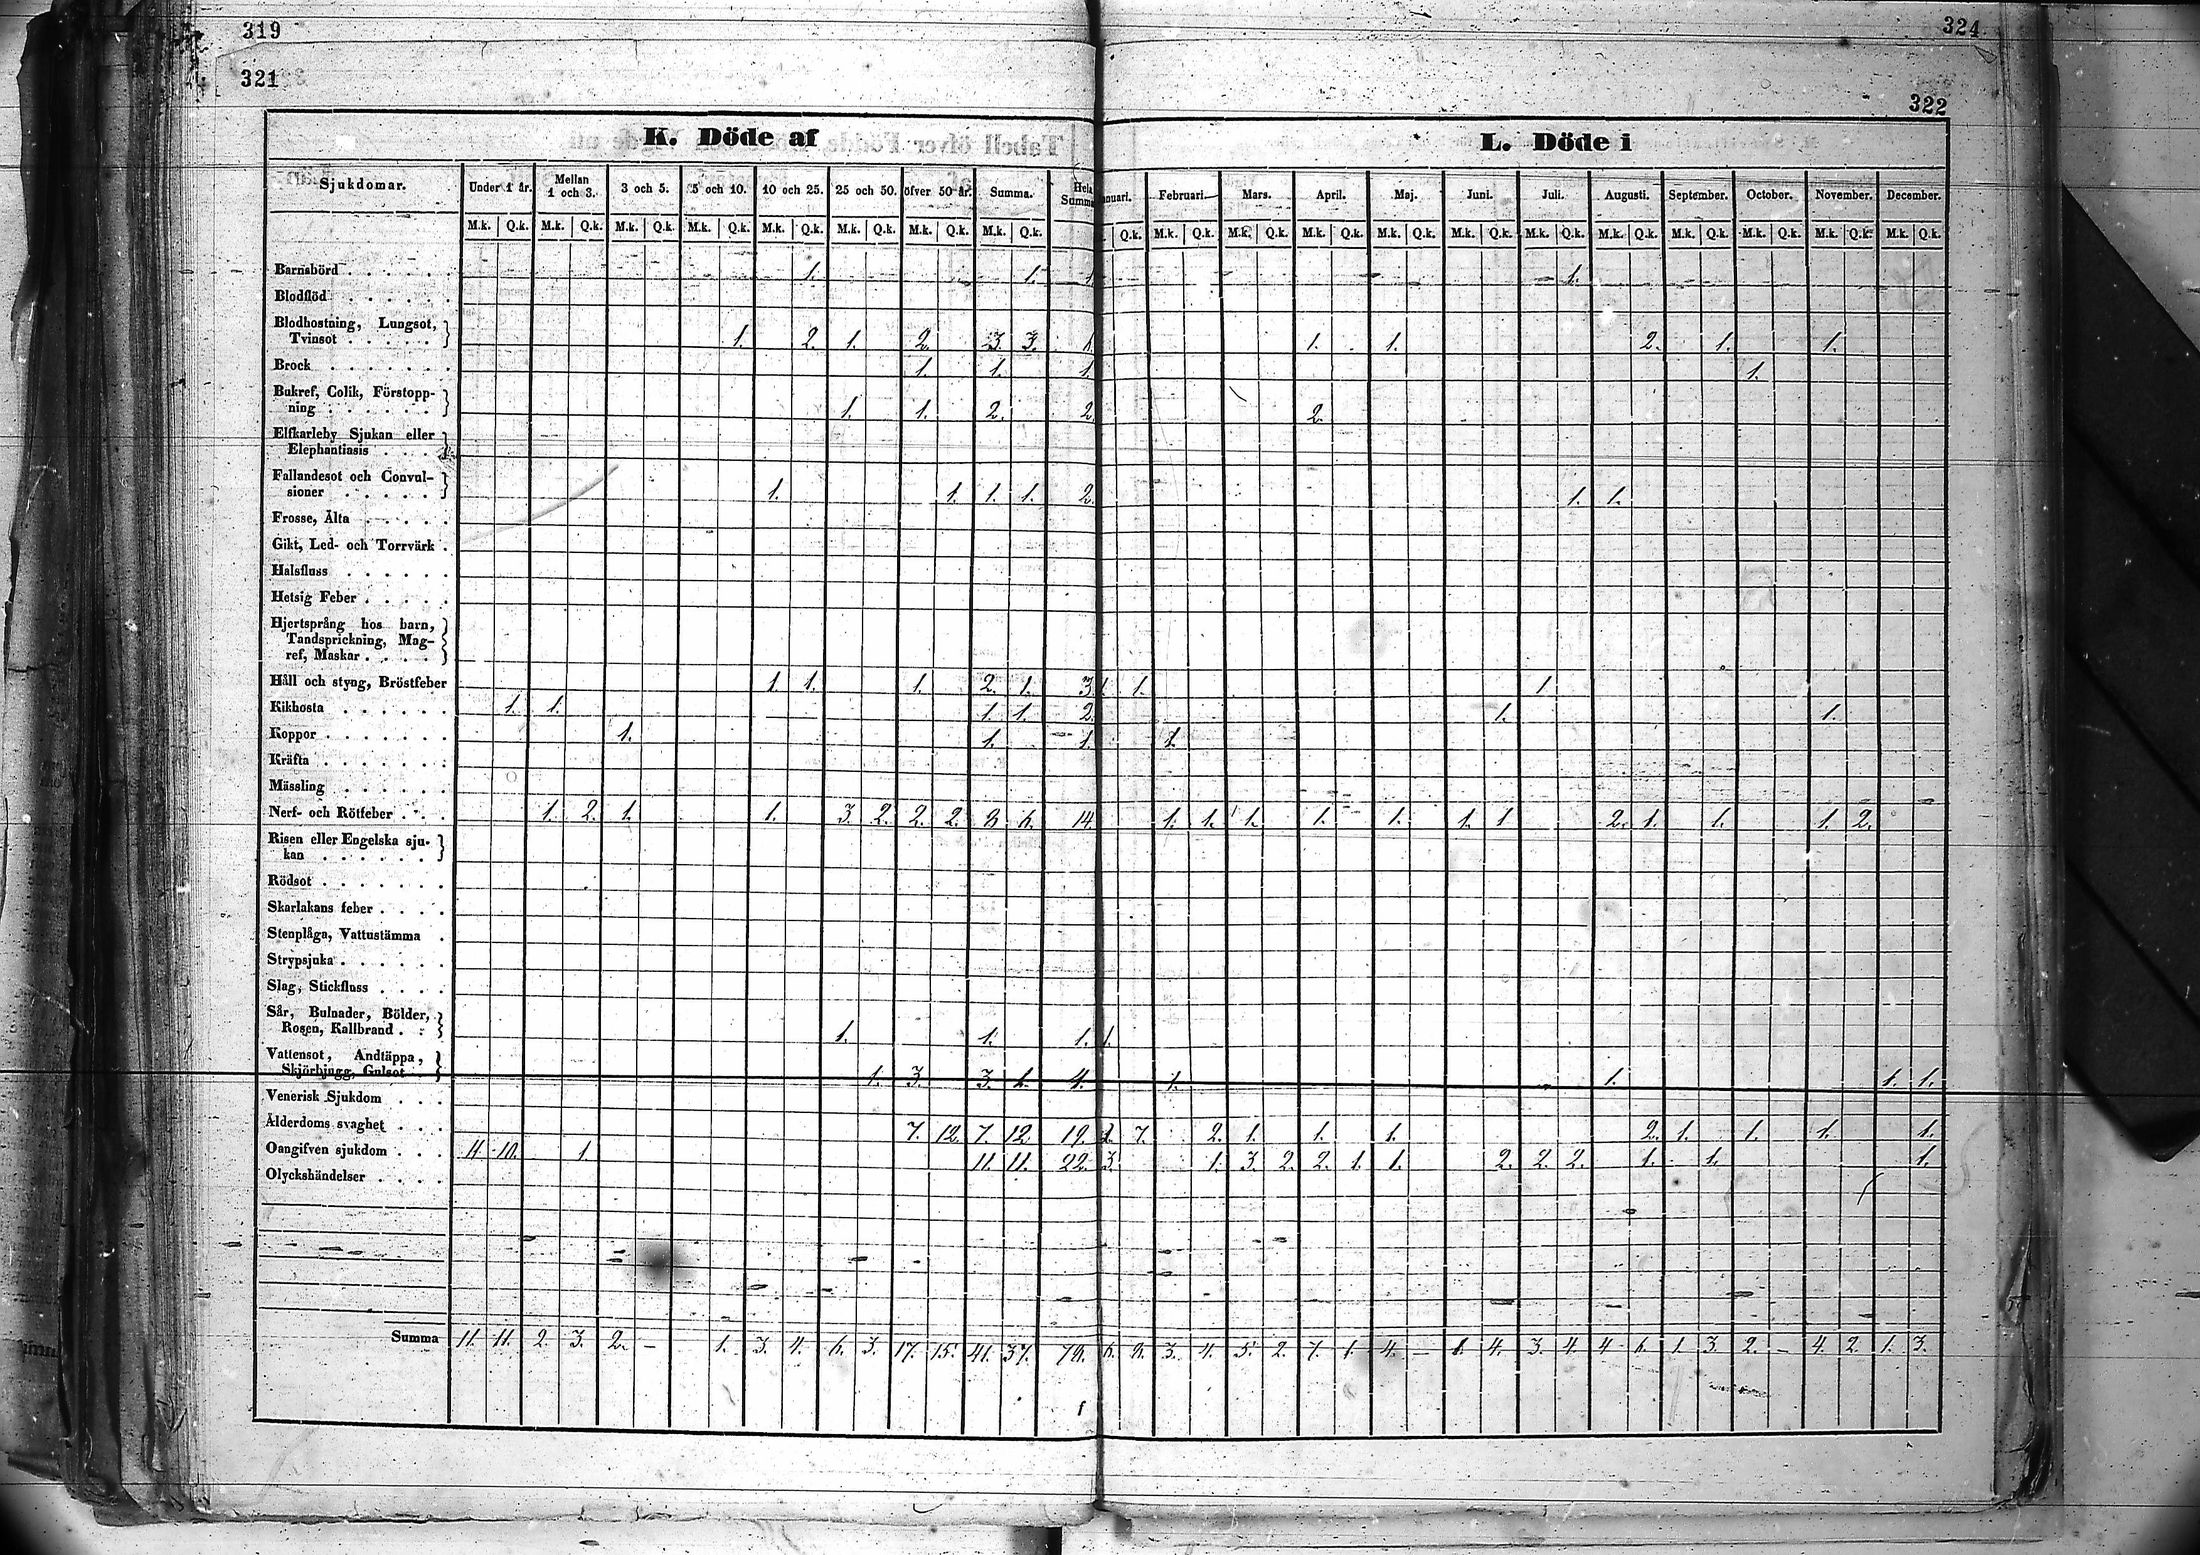 319
324
321
322
K. Döde af
L. Döde i
Sjukdomar. Under 1 år. Mellan 1 och 3. 3 och 5. 5 och 10. 10 och 25. 25 och 50. öfver 50 år. Summa. Hela Summa
anuari. Februari. Mars. April. Maj. Juni. Juli. Augusti. September. October. November. December.
M.k. Q.k. M.k. Q.k. M.k. Q.k. M.k. Q.k. M.k. Q.k. M.k. Q.k. M.k. Q.k. M.k. Q.k.
Q.k. M.k. Q.k. M.k. Q.k. M.k. Q.k. M.k. Q.k. M.k. Q.k. M.k. Q.k. M.k. Q.k. M.k. Q.k. M.k. Q.k. M.k. Q.k. M.k. Q.k.
Barnsbörd . . . . . . 1. 1. 1. 1.
Blodflöd . . . . . .
Blodhostning, Lungsot,
Tvinsot . . . . . 1. 2. 1. 2. 3. 3. 1. 1. 2. 1. 1.
Brock . . . . . . . 1. 1. 1. 1.
Bukref, Colik, Förstopp-
ning . . . . . . 1. 1. 2. 2. 2.
Elfkarleby Sjukan eller
Elephantiasis . . . .
Fallandesot och Convul-
sioner . . . . . 1. 1. 1. 1. 2. 1. 1.
Frosse, Älta . . . . .
Gikt, Led- och Torrvärk .
Halsfluss . . . . . .
Hetsig Feber . . . . .
Hjertsprång hos barn,
Tandsprickning, Mag-
ref, Maskar . . . .
Håll och styng, Bröstfeber 1. 1. 1. 2. 1. 3. 1. 1. 1
Kikhosta . . . . . . 1. 1. 1. 1. 2. 1. 1.
Koppor . . . . . . . 1. 1. 1. 1.
Kräfta . . . . . . .
Mässling . . . . . .
Nerf- och Rötfeber . . . 1. 2. 1. 1. 3. 2. 2. 2. 8. 6. 14. 1. 1. 1. 1. 1. 1. 1 2. 1. 1. 1. 2.
Risen eller Engelska sju-
kan . . . . . .
Rödsot . . . . . . .
Skarlakans feber . . . .
Stenplåga, Vattustämma .
Strypsjuka . . . . . .
Slag, Stickfluss . . . .
Sår, Bulnader, Bölder,
Rosen, Kallbrand . . 1. 1. 1. 1.
Vattensot, Andtäppa,
Skjörbjugg, Gulsot . 1. 3. 3. 1. 4. 1. 1. 1. 1.
Venerisk Sjukdom . . .
Ålderdoms svaghet . . . 7. 12. 7. 12. 19. 7. 2. 1. 1. 1. 2. 1. 1. 1. 1.
Oangifven sjukdom . . . 11 10. 1. 11. 11. 22. 3. 1. 3. 2. 2. 1. 1. 2. 2. 2. 1. 1. 1.
Olyckshändelser . . . .
Summa 11. 11. 2. 3. 2. — 1. 3. 4. 6. 3. 17. 15. 41. 37. 78. 6. 8. 3. 4. 5. 2. 7. 1. 4. — 1. 4. 3. 4. 4 6. 1. 3. 2. — 4. 2. 1. 3.